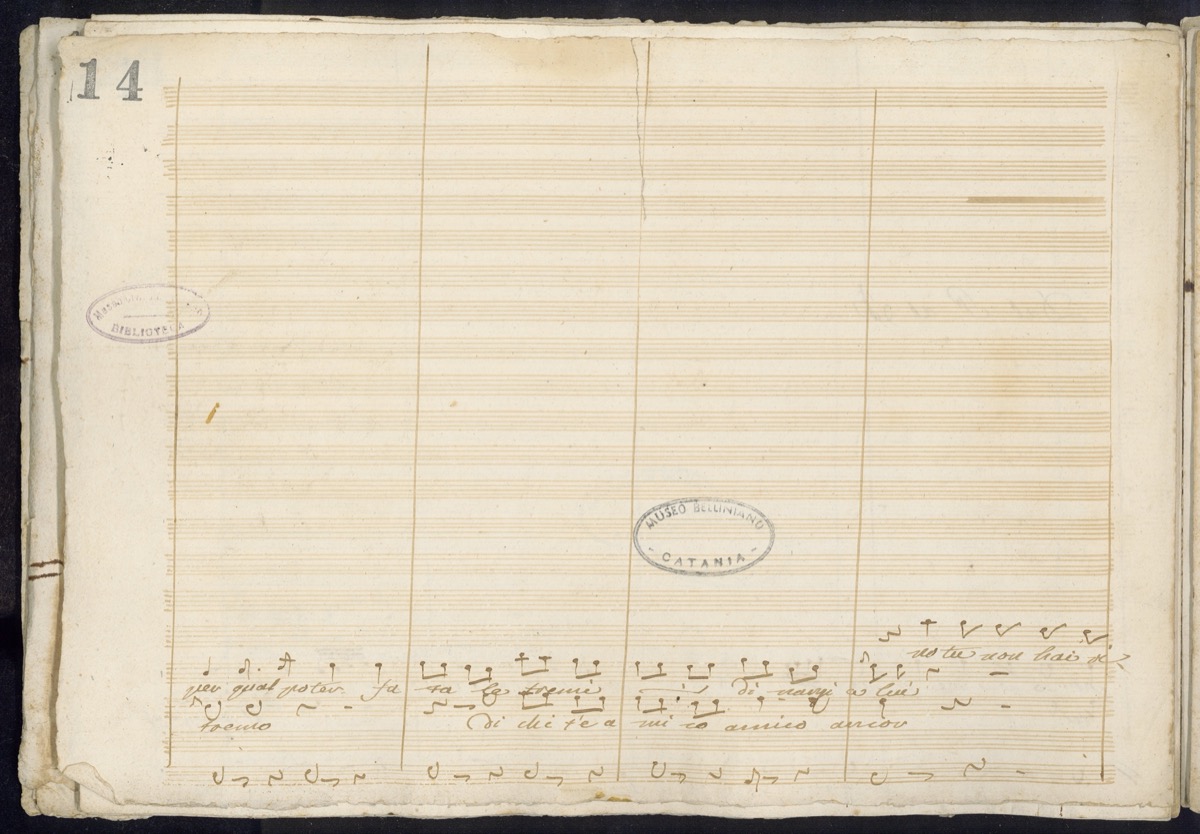 14
BIBLIOTECA
MUSEO BELLINIANO
- CATANIA -
no tu non hai
per qual poter fa ta le tremi di nanzi a lui
tremo di chi t'e a mi co amico ancor